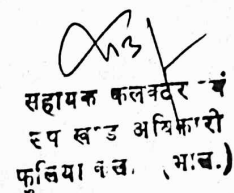 सहायक कलक्टर एवं
उप खण्ड अधिकारी
फुलिया कलां, (भील.)